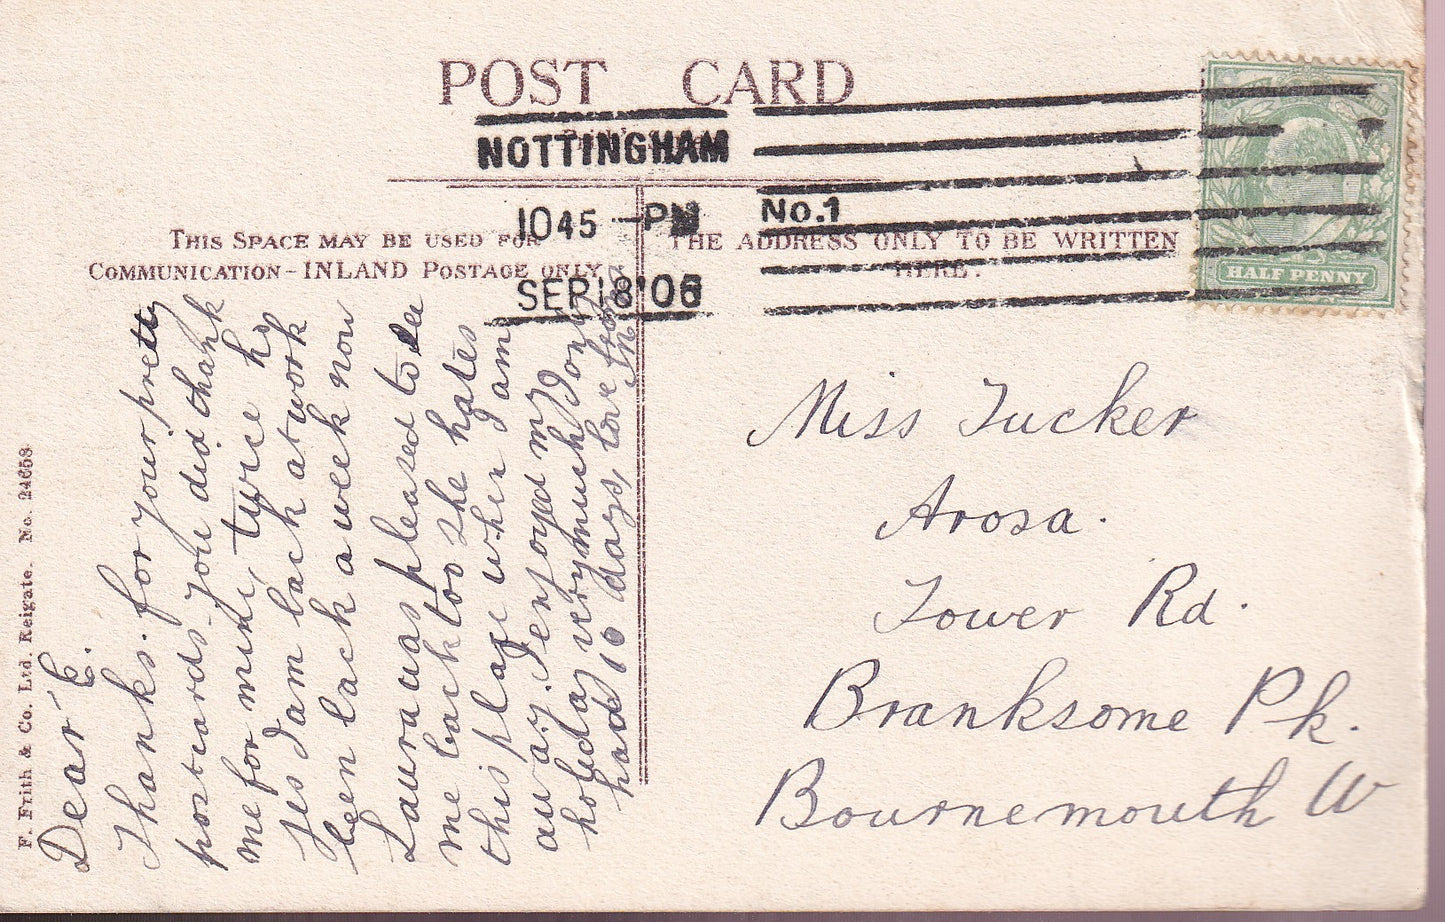 POST CARD
NOTTINGHAM
1045 PM No.1
SEP 18 '06
HALF PENNY
THIS SPACE MAY BE USED FOR
COMMUNICATION - INLAND POSTAGE ONLY
THE ADDRESS ONLY TO BE WRITTEN
HERE.
F. Frith & Co. Ltd. Reigate. No. 24658
Dear E.
Thanks. for your pretty
postcards. you did thank
me for mine, twice
yes I am back at work
been back a week now
Laura was pleased to see
me back too she hates
this place when I am
away. I enjoyed my
holiday very much I only
had 10 days, love from
Miss Tucker
Arosa.
Tower Rd.
Branksome Pk.
Bournemouth W